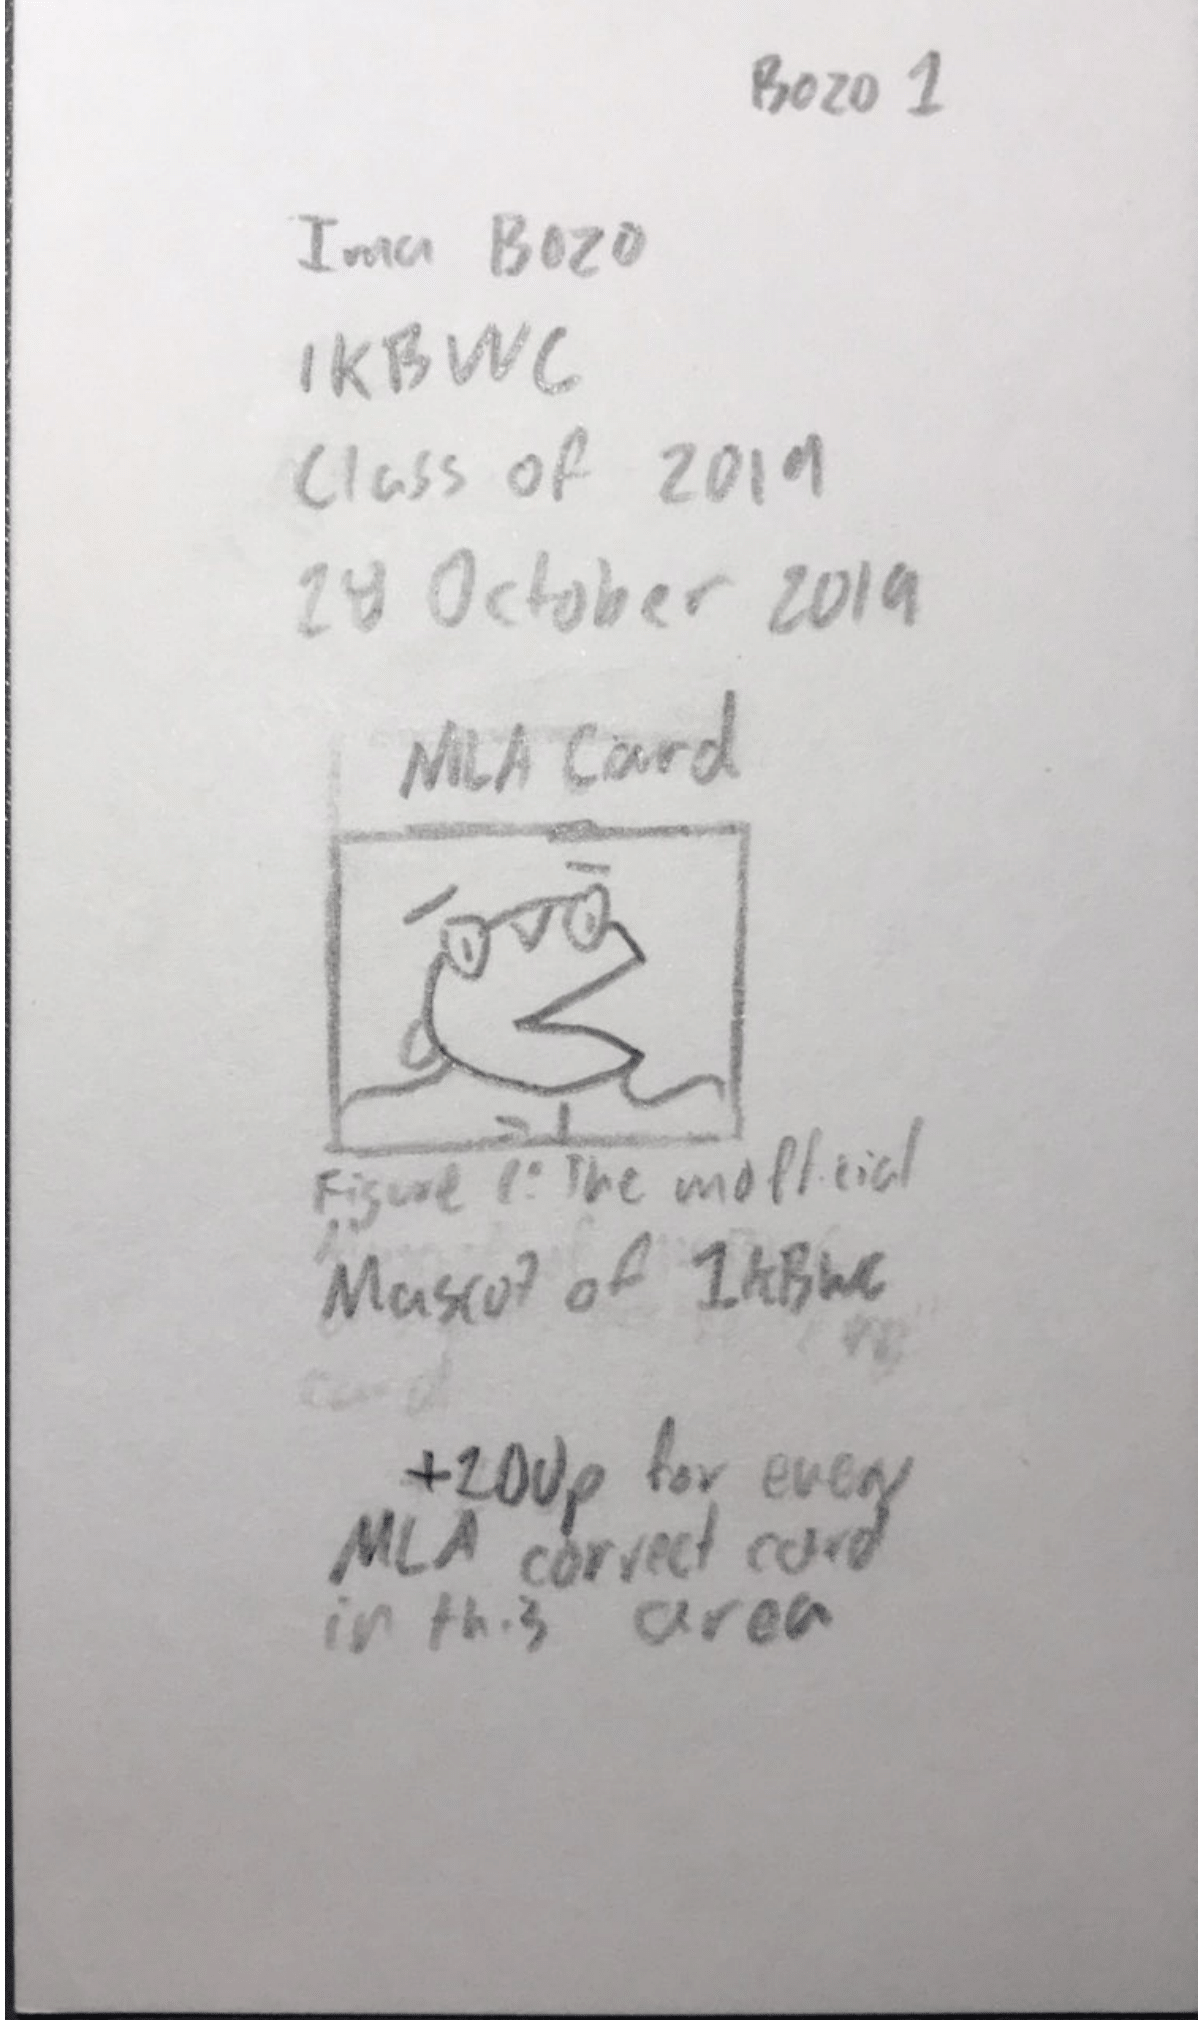 Bozo 1
Ima Bozo
1KBWC
Class of 2019
28 October 2019
MLA Card
Figure 1: The unofficial
Mascot of 1KBWC
card
+200p for every
MLA correct card
in this area